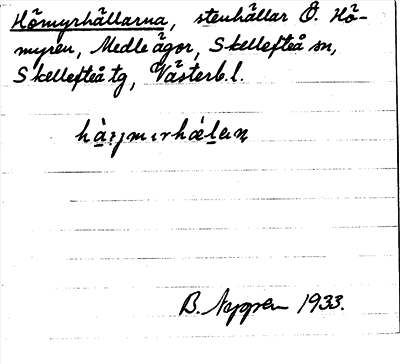 Hömyrhällarna, stenhällar Ö. Hö-
myren, Medle ägor, Skellefteå sn,
Skellefteå tg, Västerb. l.
B. Nygren 1933.